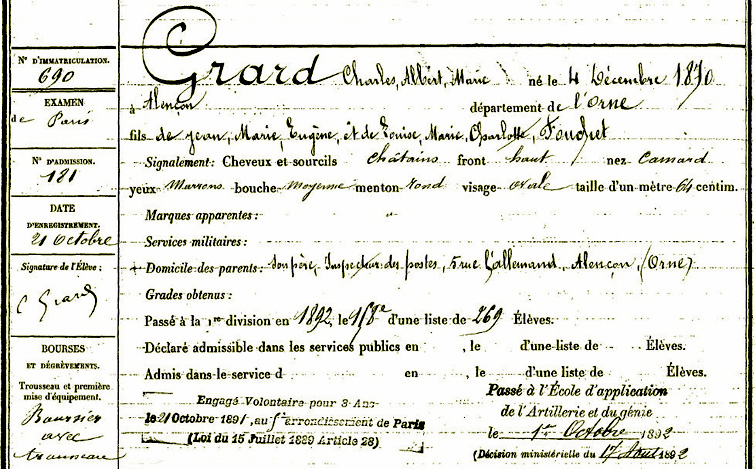 N° D'IMMATRICULATION.
690
EXAMEN
de Paris
N° D'ADMISSION.
181
DATE
D'ENREGISTREMENT.
21 Octobre
Signature de l'Élève :
C Grard
BOURSES
ET DÉGRÈVEMENTS.
Trousseau et première
mise d'équipement.
Boursier
avec
trousseau
Grard Charles, Albert, Marie né le 4 Décembre 1870
à Alençon département de l'Orne
fils de Jean, Marie, Eugène, et de Louise, Marie, Charlotte, Fouquet
Signalement : Cheveux et sourcils châtains front haut nez camard
yeux Marrons bouche moyenne menton rond visage ovale taille d'un mètre 64 centim.
Marques apparentes : "
Services militaires :
Domicile des parents : son père, Inspecteur des postes, 5 rue Lallemand, Alençon, (Orne)
Grades obtenus :
Passé à la 1re division en 1892, le 158e d'une liste de 269 Élèves.
Déclaré admissible dans les services publics en , le d'une liste de Élèves.
Admis dans le service d en , le d'une liste de Élèves.
Engagé Volontaire pour 3 Ans
le 21 Octobre 1891, au arrondissement de Paris
(Loi du 15 Juillet 1889 Article 28)
Passé à l'École d'application
de l'Artillerie et du génie
le 1er Octobre 1892
(Décision ministérielle du 17 Août 1892